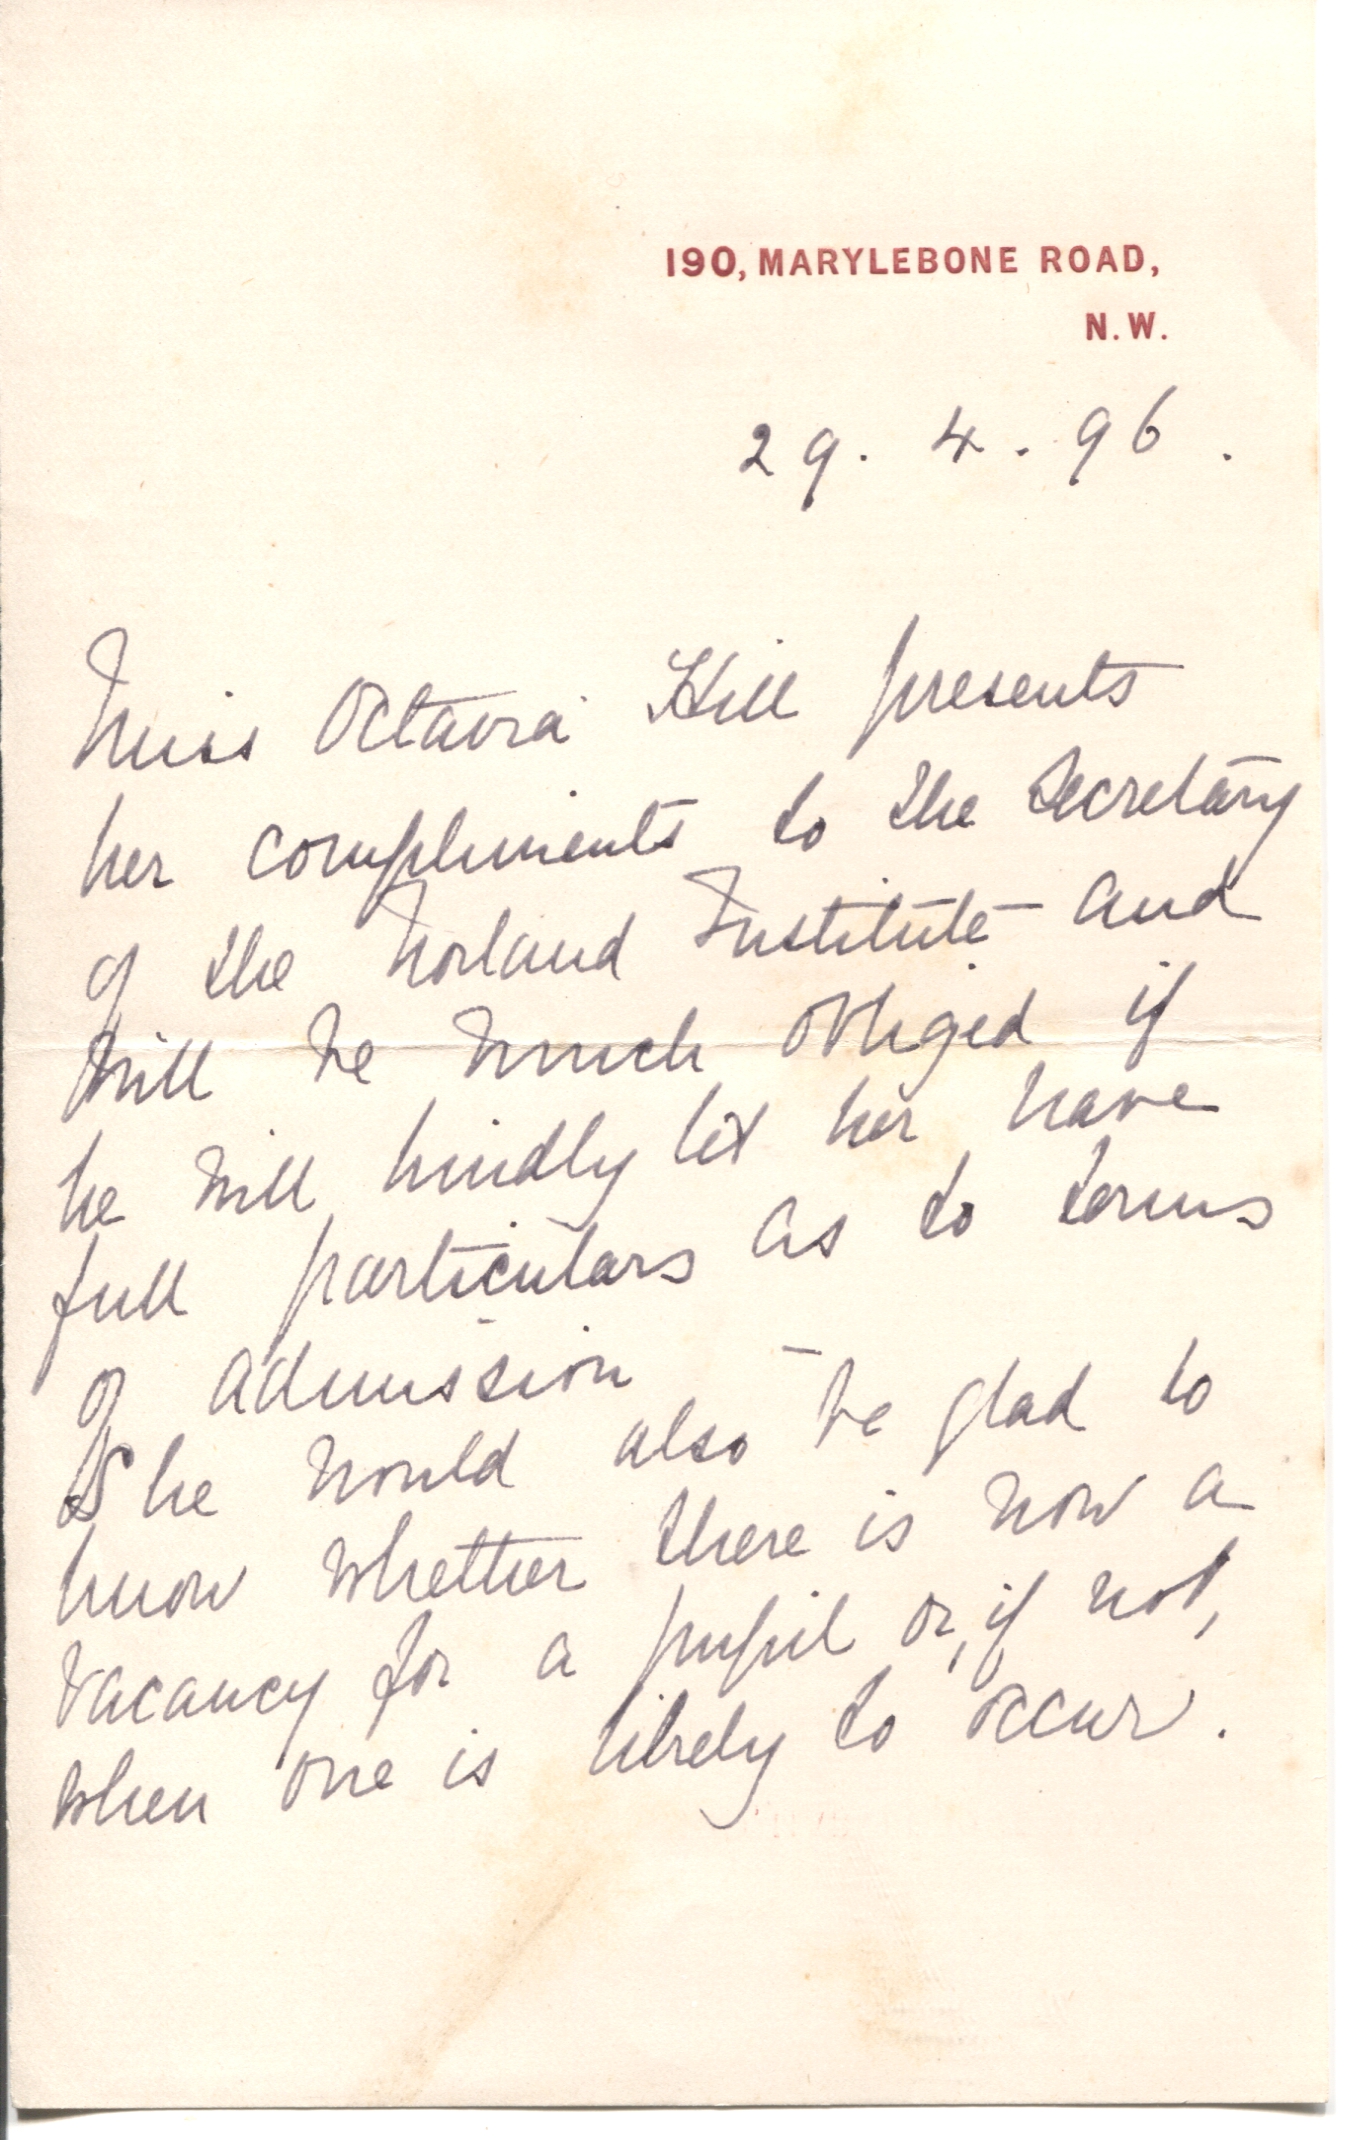 190, MARYLEBONE ROAD,
N.W.
29. 4. 96.
Miss Octavia Hill presents
her compliments to the Secretary
of the Norland Institute and
will be much obliged if
he will kindly let her have
full particulars as to terms
of admission
She would also be glad to
know whether there is now a
vacancy for a pupil or, if not,
when one is likely to occur.